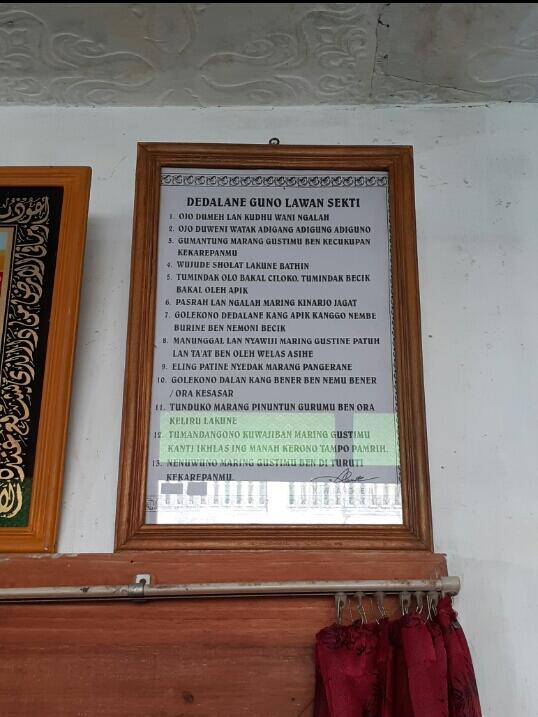 DEDALANE GUNO LAWAN SEKTI
1. OJO DUMEH LAN KUDHU WANI NGALAH
2. OJO DUWENI WATAK ADIGANG ADIGUNG ADIGUNO
3. GUMANTUNG MARANG GUSTIMU BEN KECUKUPAN
KEKAREPANMU
4. WUJUDE SHOLAT LAKUNE BATHIN
5. TUMINDAK OLO BAKAL CILOKO, TUMINDAK BECIK
BAKAL OLEH APIK
6. PASRAH LAN NGALAH MARING KINARJO JAGAT
7. GOLEKONO DEDALANE KANG APIK KANGGO NEMBE
BURINE BEN NEMONI BECIK
8. MANUNGGAL LAN NYAWIJI MARING GUSTINE PATUH
LAN TA'AT BEN OLEH WELAS ASIHE
9. ELING PATINE NYEDAK MARING PANGERANE
10. GOLEKONO DALAN KANG BENER BEN NEMU BENER
/ ORA KESASAR
11. TUNDUKO MARANG PINUNTUN GURUMU BEN ORA
KELIRU LAKUNE
12. TUMANDANGONO KUWAJIBAN MARING GUSTIMU
KANTI IKHLAS ING MANAH KERONO TAMPO PAMRIH.
13. NENUWUNO MARING GUSTIMU BEN DI TURUTI
KEKAREPANMU.